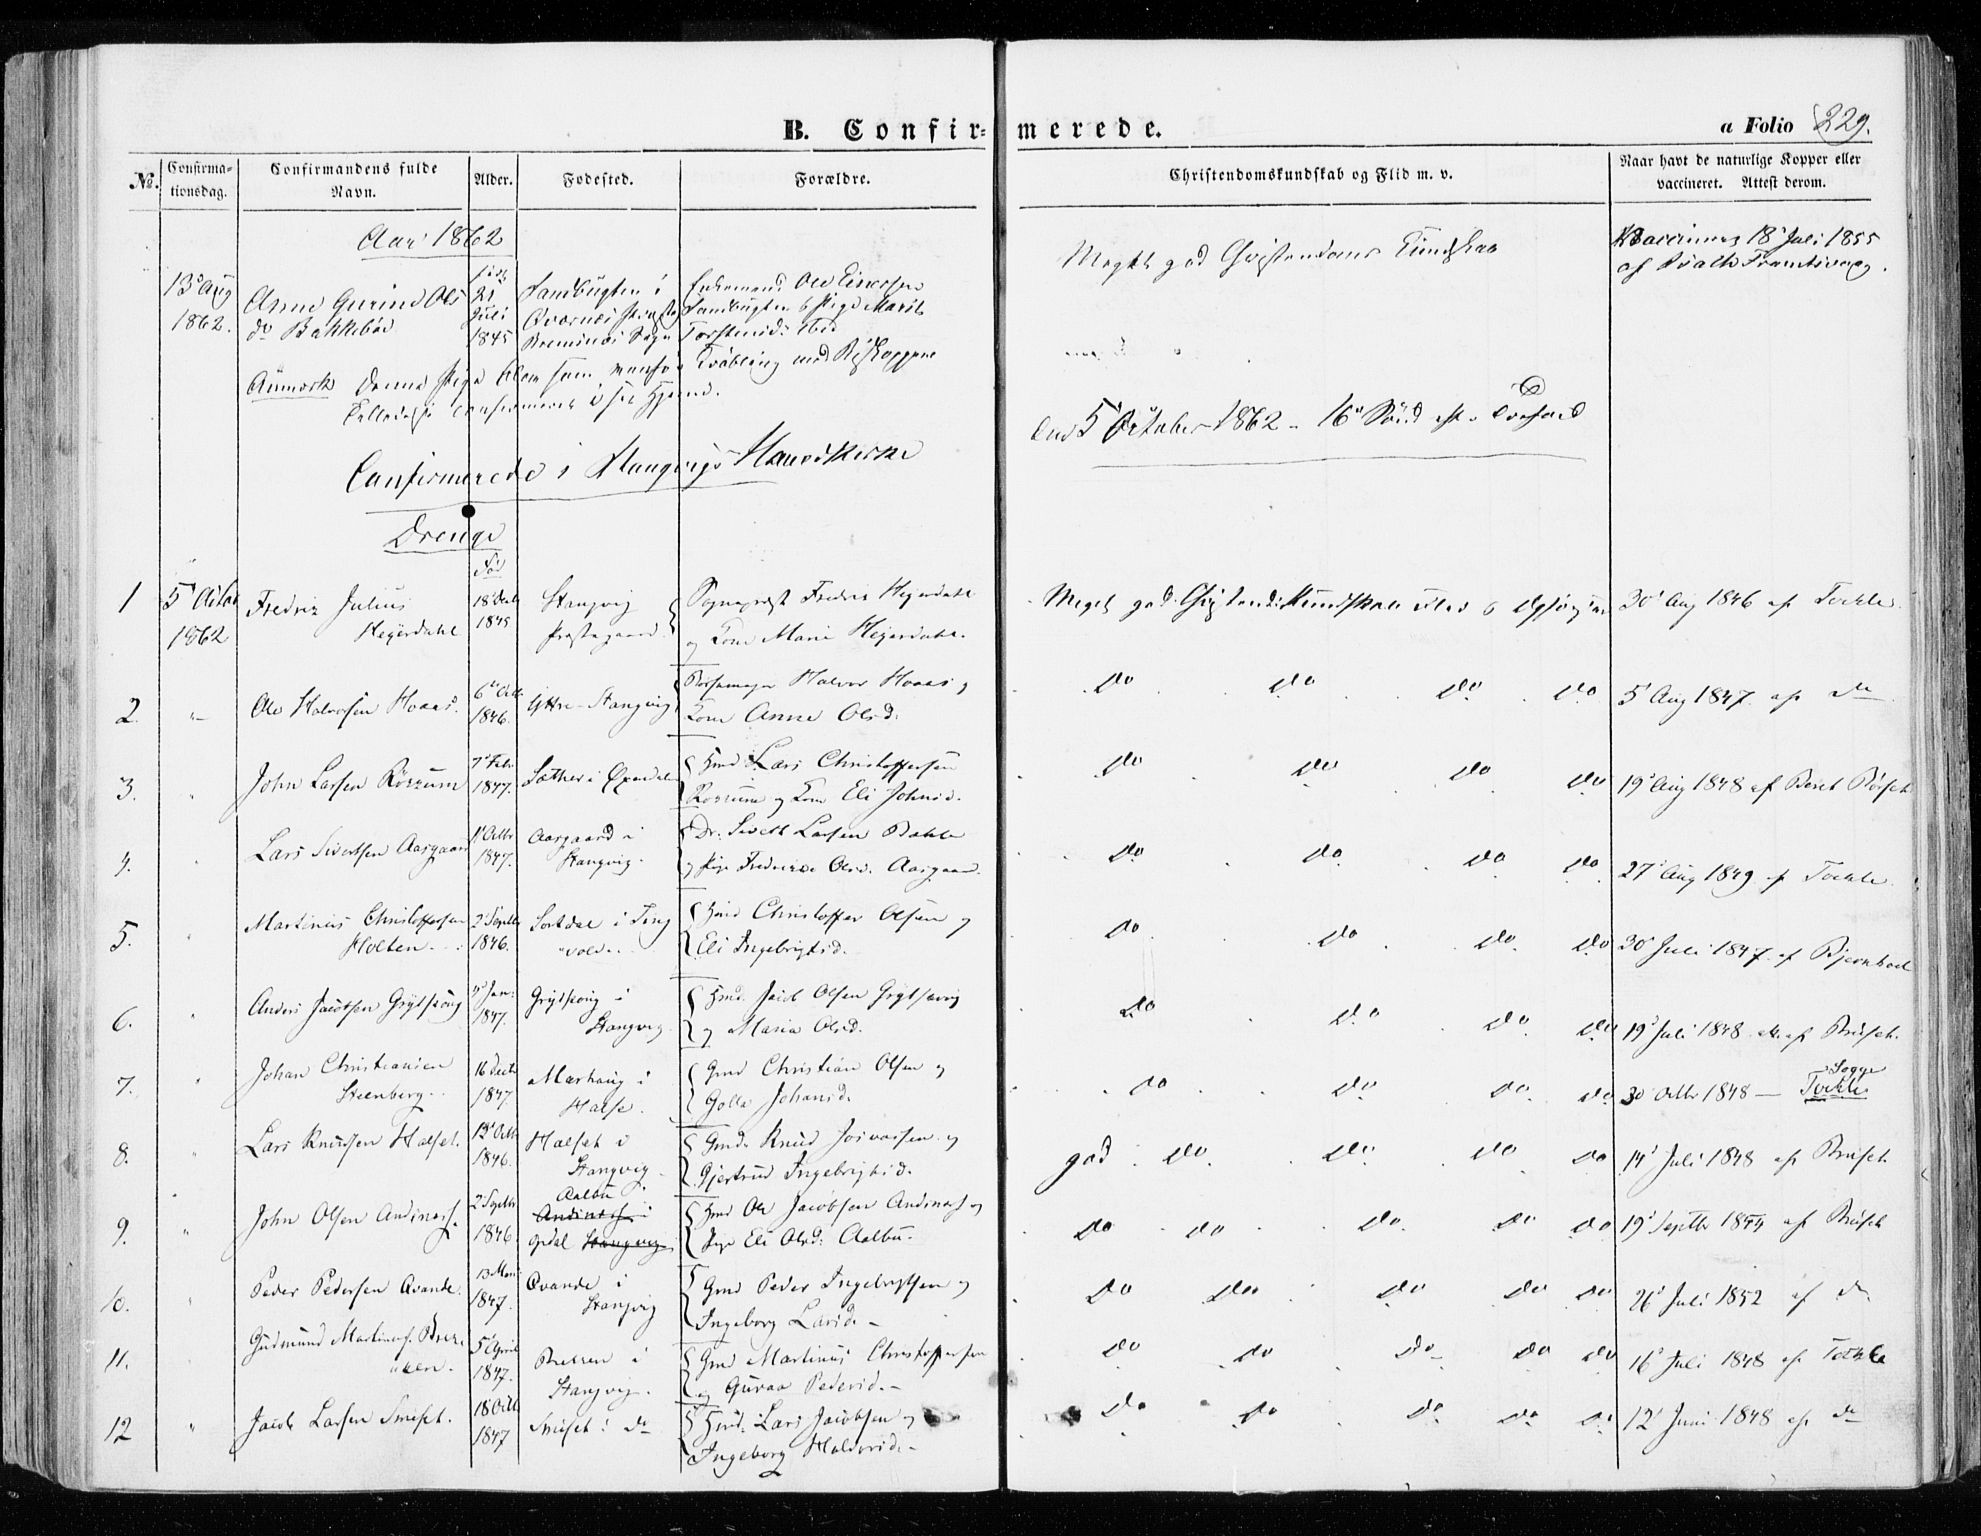 B. Confir=merede.
a Folio 229.
No.
Confirma-
tionsdag.
Confirmandens fulde
Navn.
Alder.
Fodested.
Forældre.
Christendomskundskab og Flid m. v.
Naar havt de naturlige Kopper eller
vaccineret. Attest derom.
Aar 1862
13 Aug 1862.
Anne Gurine Ols
dr Bakkebøe
født 21 Juli 1845
Sandbugten i
Enkemand Ole Einersen
Sandbugten & Pige Marit
Torstensd: ibid
Meget god Christendoms Kundskab
Vaccineret 18 Juli 1855
af
Anmærk Denne Pige blev som
confirmeret i sit Hjem.
Confirmerede i Stangvigs Hovedkirke
Den 5 October 1862 - 16 Sønd eft.
Drenge
Fød
1 5 Octob 1862 Fredrik Julius Heyerdahl 18 Decb 1845 Stangvig Præstegaard Sogneprest Fredrik Heyerdahl og Kone Marie Heyerdahl. Meget god Christend: Kundskab Flid & Opførsel 30 Aug 1846 af Torkle
2. " Ole Halvorsen Hoaas. 6 Octb 1846. Yttre-Stangvig Halvor Hoaas og Kone Anne Olsd: Do Do Do Do 5 Aug 1847 af do
3. " John Larsen Rørrum 7 Febr 1847. Sæther i Øxendal Gmd Lars Christoffersen Rørrum og Kone Eli Johnsd. Do Do Do Do 19 Aug 1848 af Beret Børset
4. " Lars Sivertsen Aasgaard 1 Octbr 1847. Aasgaard i Stangvig. Dr: Sivert Larsen Bakke og Pige Fredrikke Olsd. Aasgaard. Do Do Do Do 27 Aug 1849 af Torkle.
5. " Martinus Christoffersen Holten 2 Septbr 1846. i Tingvold. Gmd Christoffer Olsen og Eli Ingebrigtsd. Do Do Do Do 30 Juli 1847 af
6. " Anders Jacobsen Grytskoug Jan: 1847. Grytskoug i Stangvig Gmd. Jacob Olsen Grytskoug og Maria Olsd. Do Do Do Do 19 Juli 1848 af Bruset.
7. " Johan Christiansen Steenberg. 16 Decb 1847 Mærhaug i Halse. Gmd Christian Olsen og Golla Johansd. Do Do Do Do 30 Octbr 1848 — Sogge Torkle
8. " Lars Knudsen Halset. 12 Octb 1846. Halset i Stangvig Gmd. Knud og Gjertrud Ingebrigtsd. god Do Do Do Do 14 Juli 1848 af Bruset
9. " John Olsen 2 Septbr 1846 Aalbu i Opdal Stangvig Gmd Ole Jacobsen og Pige Eli Olsd: Aalbu. Do Do Do Do Do 19 Septbr 1854 af Bruset
10. " Peder Pedersen Qvande. 13 1847. Qvande i Stangvig Gmd Peder Ingebrigtsen og Ingeborg Larsd. Do Do Do Do Do 26 Juli 1852 af do
11. " Gudmund Martinus. 5 April 1847. i Stangvig. Gmd Martinus Christoffersen og Guroa Pedersd. Do Do Do Do Do 16 Juli 1848 af Torkle
12 " Jacob Larsen Smiset. 18 Octb 1847 Smiset i do Gmd. Lars Jacobsen og Ingeborg Halvorsd. Do Do Do Do Do 12 Juni 1848 af do